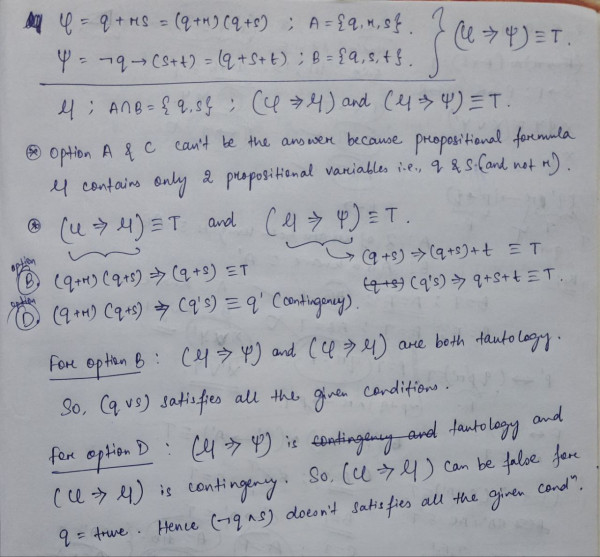 φ = q + rs = (q+r)(q+s) ; A = {q, r, s}. } (φ → ψ) ≡ T.
ψ = ¬q → (s+t) = (q+s+t) ; B = {q, s, t}.
μ ; A∩B = {q, s} ; (φ → μ) and (μ → ψ) ≡ T.
⊛ Option A & C can't be the answer because propositional formula
μ contains only 2 propositional variables i.e., q & s. (and not r).
⊛ (φ → μ) ≡ T and (μ → ψ) ≡ T.
(q+s) → (q+s)+t ≡ T
option B. (q+r)(q+s) → (q+s) ≡ T
(q+s) (q's) → q+s+t ≡ T.
option D. (q+r)(q+s) → (q's) ≡ q' (contingency).
For option B : (μ → ψ) and (φ → μ) are both tautology.
So, (q∨s) satisfies all the given conditions.
For option D : (μ → ψ) is contingency and tautology and
(φ → μ) is contingency. So, (φ → μ) can be false for
q = true. Hence (¬q∧s) doesn't satisfies all the given condⁿ.